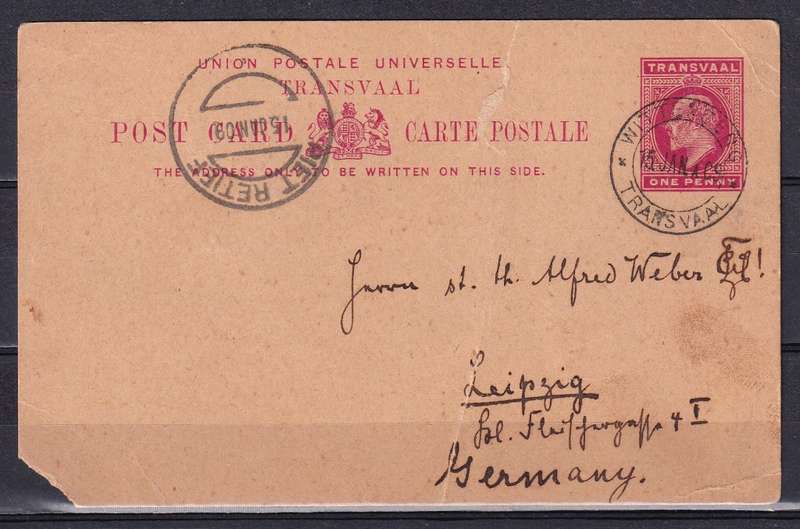 UNION POSTALE UNIVERSELLE.
TRANSVAAL
POST CARD CARTE POSTALE
THE ADDRESS ONLY TO BE WRITTEN ON THIS SIDE.
TRANSVAAL
ONE PENNY
PIET RETIEF
15 JAN 09
15 JAN
TRANSVAAL
Herrn st. th. Alfred Weber
Leipzig
Kl. Fleischergasse 4 I
Germany.